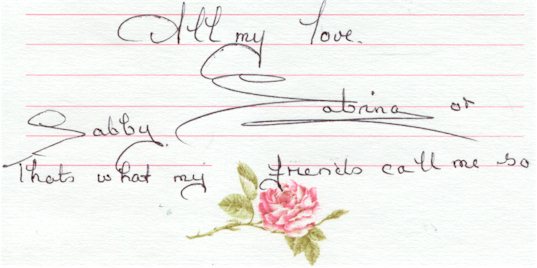 All my love.
Sabrina or
Sabby.
Thats what my friends call me so